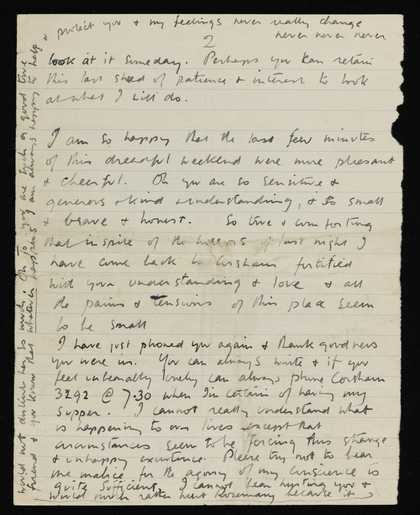 protect you & my feelings never really change
never never never
2
look at it someday. Perhaps you can retain
this last shred of patience & interest to look
at what I will do.
I am so happy that the last few minutes
of this dreadful weekend were more pleasant
& cheerful. Oh you are so sensitive &
generous & kind & understanding, & so small
& brave & honest. So true & comforting
that in spite of the horrors of last night I
have come back to Corsham fortified
with your understanding & love & all
the pains & tensions of this place seem
to be small
I have just phoned you again & thank goodness
you were in. You can always write & if you
feel unbearably lonely can always phone Corsham
3292 @ 7.30 when I'm certain of having my
supper. I cannot really understand what
is happening to our lives except that
circumstances seem to be forcing this strange
& unhappy existence. Please try not to bear
me malice for the agony of my conscience is
quite sufficient. I cannot bear hurting you &
would much rather hurt Rosemary because it
would not hurt her so much. Oh Jo you are such a good true
friend & you know that whatever happens I am always happy to help &